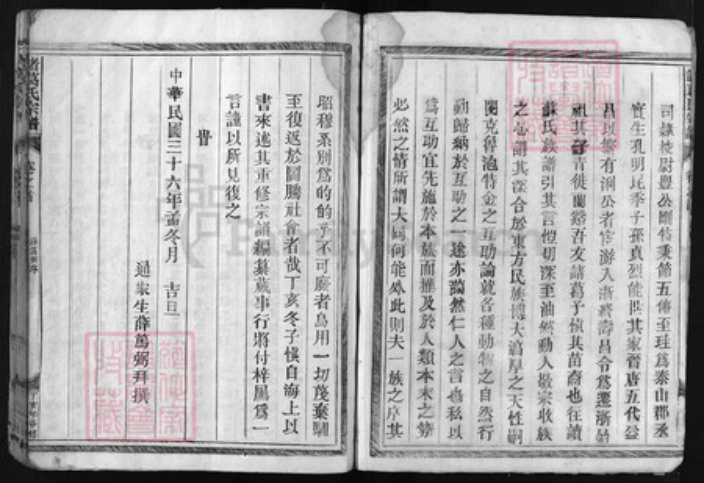 司隸校尉豐公剛特秉節五傳至珪為泰山郡丞
實生孔明昆季子孫貞烈能世其家晉唐五代益
昌以繁有浰公者宦游入浙終壽昌令為遷浙始
祖其子青徙蘭谿吾友諸葛子慎其苗裔也往讀
蘇氏族譜引其言愷切深至油然動人敬宗收族
之心謂其深合於東方民族博大篤厚之天性嗣
閱克魯泡特金之互助論就各種動物之自然行
動歸納於互助之一途亦藹然仁人之言也私以
為互助宜先施於本族而推及於人類本末之勢
必然之情所謂大同何能外此則夫一族之序其
昭穆系別為的的乎不可廢者烏用一切蔑棄馴
至復返於圖騰社會者哉丁亥冬子慎自海上以
書來述其重修宗譜編纂蕆事行將付梓屬為一
言謹以所見復之
旹
中華民國三十六年孟冬月 吉旦
通家生薛篤弼拜撰
諸葛氏宗譜